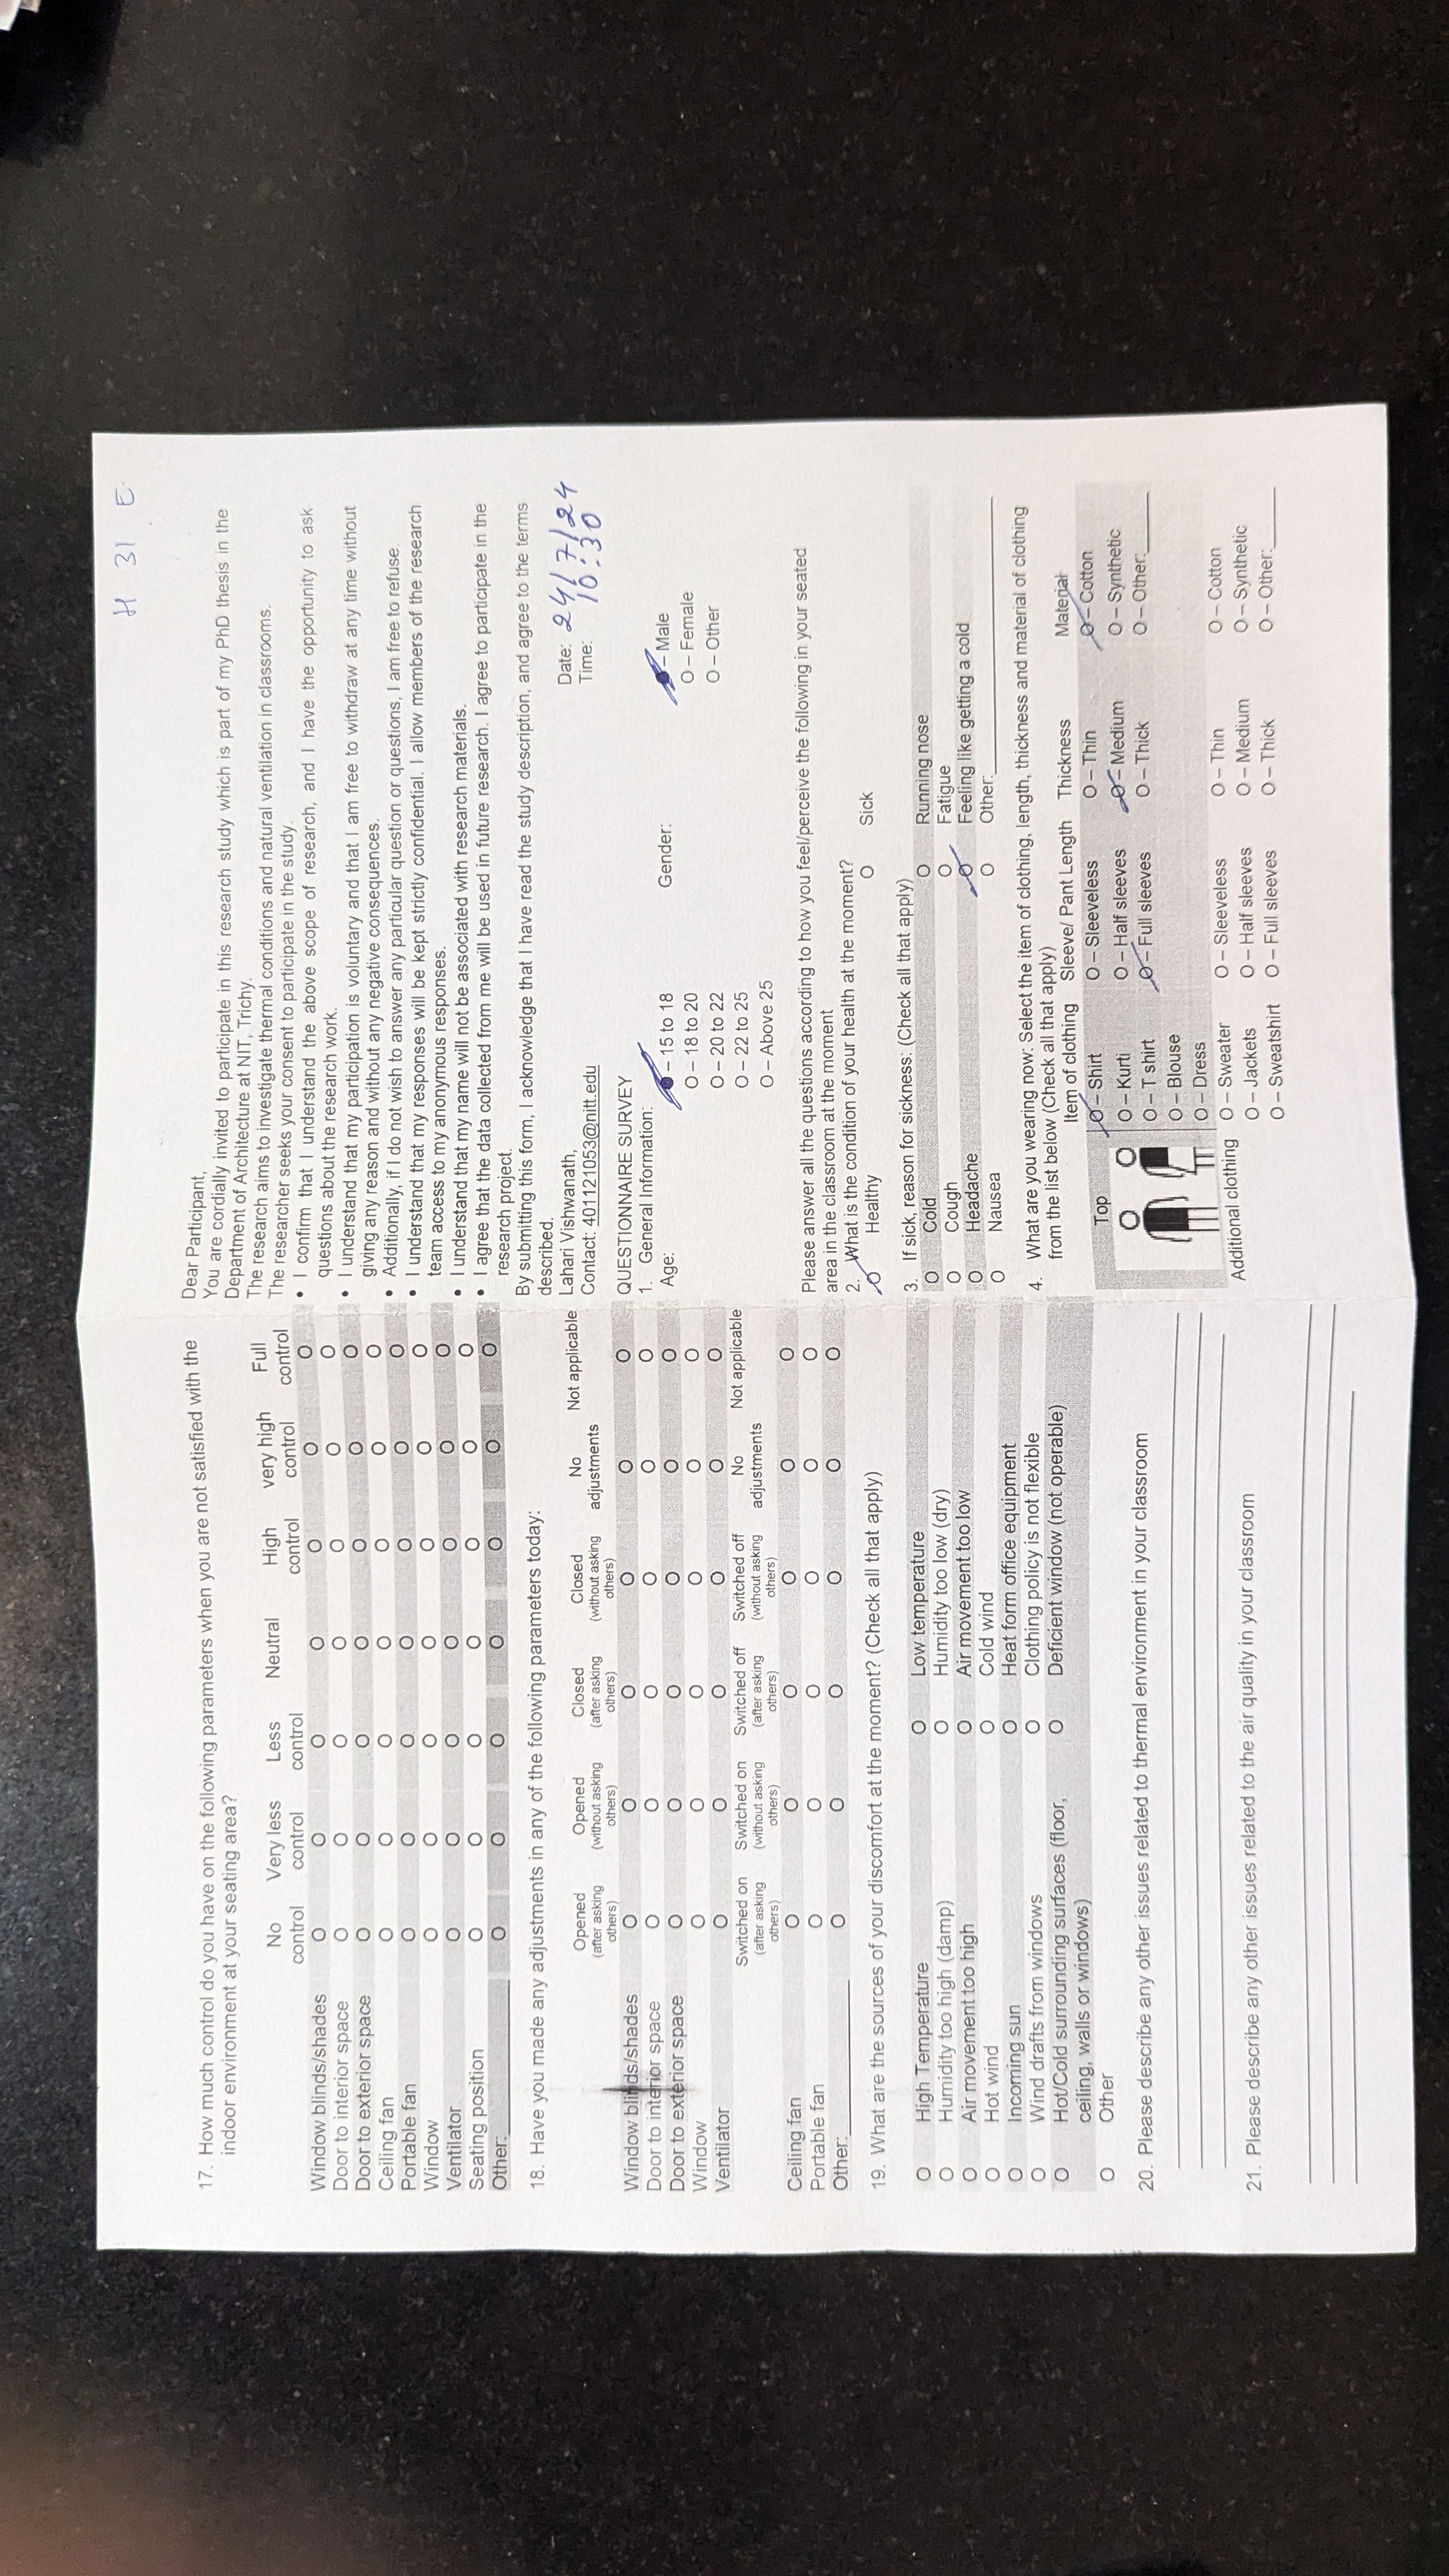 17. How much control do you have on the following parameters when you are not satisfied with the
indoor environment at your seating area?
No control Very less control Less control Neutral High control very high control Full control
Window blinds/shades O O O O O O O
Door to interior space O O O O O O O
Door to exterior space O O O O O O O
Ceiling fan O O O O O O O
Portable fan O O O O O O O
Window O O O O O O O
Ventilator O O O O O O O
Seating position O O O O O O O
Other: O O O O O O O
18. Have you made any adjustments in any of the following parameters today:
Opened (after asking others) Opened (without asking others) Closed (after asking others) Closed (without asking others) No adjustments Not applicable
Window blinds/shades O O O O O O
Door to interior space O O O O O O
Door to exterior space O O O O O O
Window O O O O O O
Ventilator O O O O O O
Switched on (after asking others) Switched on (without asking others) Switched off (after asking others) Switched off (without asking others) No adjustments Not applicable
Ceiling fan O O O O O O
Portable fan O O O O O O
Other: O O O O O O
19. What are the sources of your discomfort at the moment? (Check all that apply)
O High Temperature O Low temperature
O Humidity too high (damp) O Humidity too low (dry)
O Air movement too high O Air movement too low
O Hot wind O Cold wind
O Incoming sun O Heat form office equipment
O Wind drafts from windows O Clothing policy is not flexible
O Hot/Cold surrounding surfaces (floor, O Deficient window (not operable)
ceiling, walls or windows)
O Other
20. Please describe any other issues related to thermal environment in your classroom
21. Please describe any other issues related to the air quality in your classroom
H 31 E
Dear Participant,
You are cordially invited to participate in this research study which is part of my PhD thesis in the
Department of Architecture at NIT, Trichy.
The research aims to investigate thermal conditions and natural ventilation in classrooms.
The researcher seeks your consent to participate in the study.
• I confirm that I understand the above scope of research, and I have the opportunity to ask
questions about the research work.
• I understand that my participation is voluntary and that I am free to withdraw at any time without
giving any reason and without any negative consequences.
• Additionally, if I do not wish to answer any particular question or questions, I am free to refuse.
• I understand that my responses will be kept strictly confidential. I allow members of the research
team access to my anonymous responses.
• I understand that my name will not be associated with research materials.
• I agree that the data collected from me will be used in future research. I agree to participate in the
research project.
By submitting this form, I acknowledge that I have read the study description, and agree to the terms
described.
Lahari Vishwanath, Date: 24/7/24
Contact: 401121053@nitt.edu Time: 10:30
QUESTIONNAIRE SURVEY
1. General Information:
Age: – 15 to 18 Gender: – Male
O – 18 to 20 O – Female
O – 20 to 22 O – Other
O – 22 to 25
O – Above 25
Please answer all the questions according to how you feel/perceive the following in your seated
area in the classroom at the moment
2. What is the condition of your health at the moment?
O Healthy O Sick
3. If sick, reason for sickness: (Check all that apply)
O Cold O Running nose
O Cough O Fatigue
O Headache O Feeling like getting a cold
O Nausea O Other:
4. What are you wearing now: Select the item of clothing, length, thickness and material of clothing
from the list below (Check all that apply)
Item of clothing Sleeve/ Pant Length Thickness Material
Top O – Shirt O – Sleeveless O – Thin O – Cotton
O – Kurti O – Half sleeves O – Medium O – Synthetic
O – T shirt O – Full sleeves O – Thick O – Other:
O – Blouse
O – Dress
Additional clothing O – Sweater O – Sleeveless O – Thin O – Cotton
O – Jackets O – Half sleeves O – Medium O – Synthetic
O – Sweatshirt O – Full sleeves O – Thick O – Other: